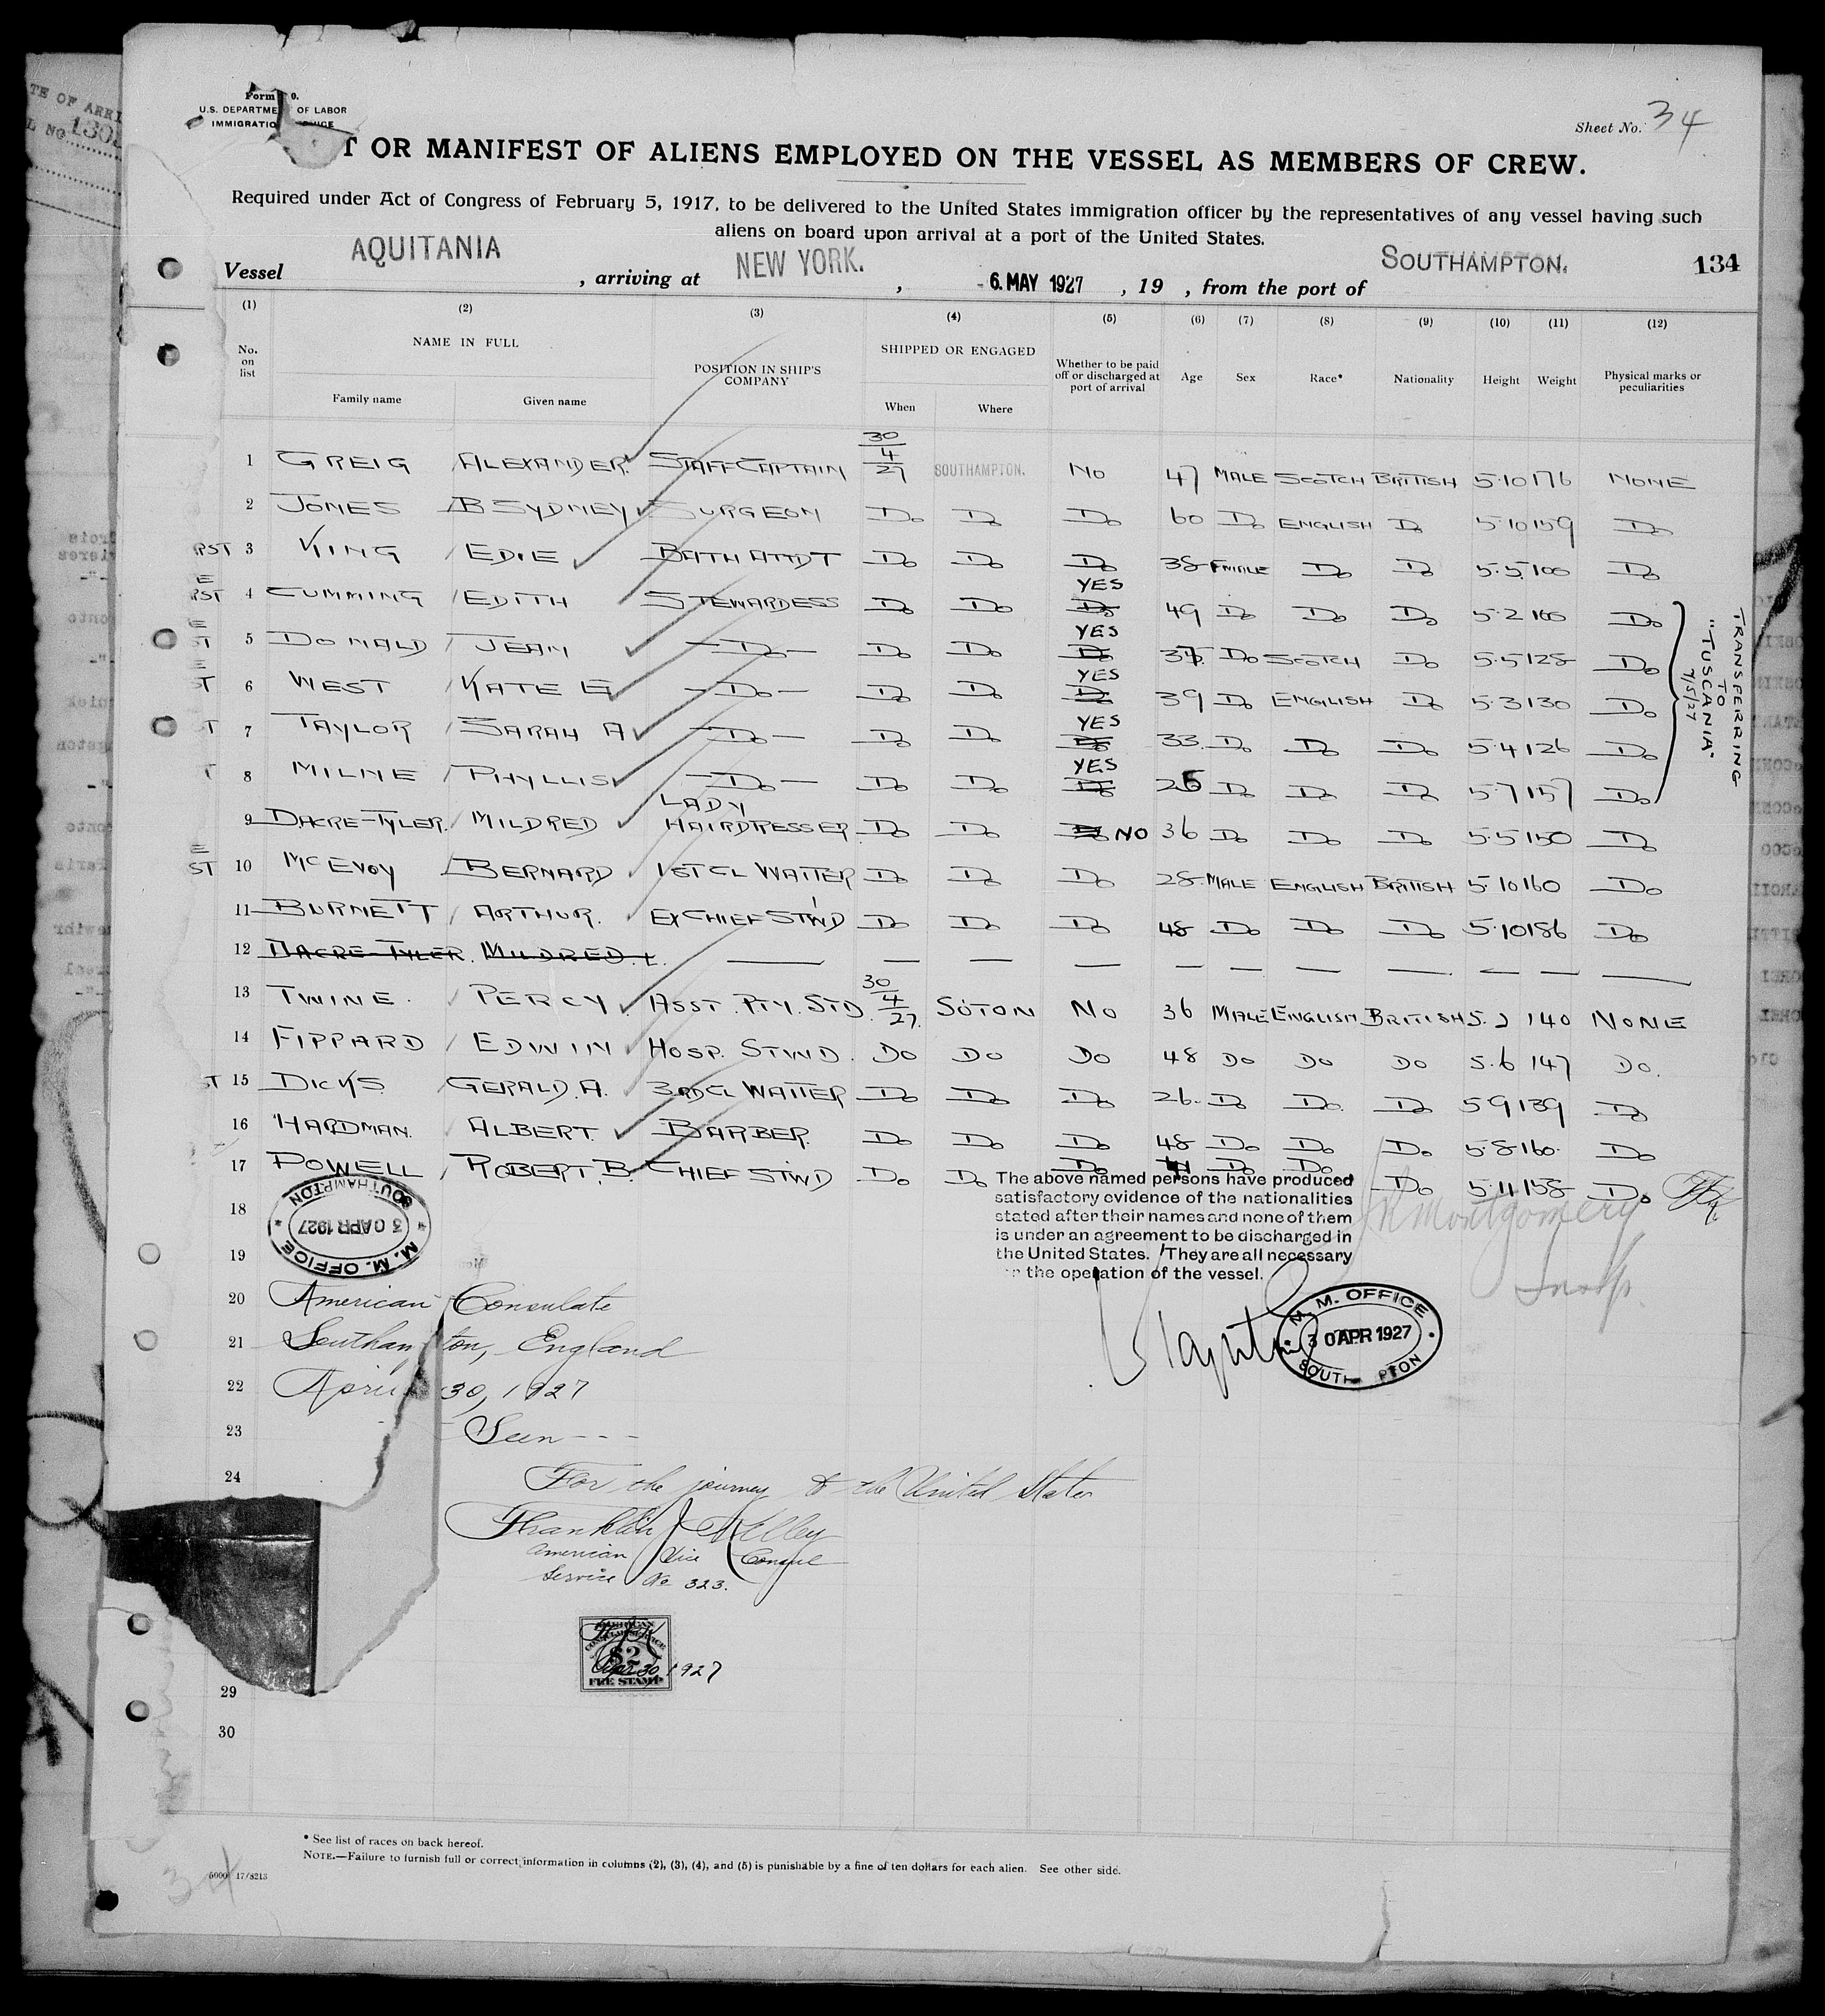 Form 0.
U.S. DEPARTME OF LABOR
IMMIGRATIO
Sheet No. 34
T OR MANIFEST OF ALIENS EMPLOYED ON THE VESSEL AS MEMBERS OF CREW.
Required under Act of Congress of February 5, 1917, to be delivered to the United States immigration officer by the representatives of any vessel having such
aliens on board upon arrival at a port of the United States.
Vessel AQUITANIA , arriving at NEW YORK. , - 6. MAY 1927 , 19 , from the port of SOUTHAMPTON. 134
(1) (2) (3) (4) (5) (6) (7) (8) (9) (10) (11) (12)
No. on list NAME IN FULL POSITION IN SHIP'S COMPANY SHIPPED OR ENGAGED Whether to be paid off or discharged at port of arrival Age Sex Race* Nationality Height Weight Physical marks or peculiarities
Family name Given name When Where
1 GREIG ALEXANDER STAFF CAPTAIN 30/4/27 SOUTHAMPTON. NO 47 MALE SCOTCH BRITISH 5.10 176 NONE
2 JONES B SYDNEY SURGEON Do Do Do 60 Do ENGLISH Do 5.10 159 Do
RST 3 KING EDIE BATH ATTDT Do Do Do 38 FMALE Do Do 5.5 100 Do
E RST 4 CUMMING EDITH STEWARDESS Do Do YES Do 49 Do Do Do 5.2 100 Do
E ST 5 DONALD JEAN Do Do Do YES Do 37 Do SCOTCH Do 5.5 128 Do
E ST 6 WEST KATE E Do Do Do YES Do 39 Do ENGLISH Do 5.3 130 Do
T 7 TAYLOR SARAH A Do Do Do YES Do 33 Do Do Do 5.4 126 Do
T 8 MILNE PHYLLIS Do Do Do YES Do 26 Do Do Do 5.7 157 Do
TRANSFERRING TO "TUSCANIA" 7/5/27
9 DACRE-TYLER. MILDRED LADY HAIRDRESSER Do Do NO 36 Do Do Do 5.5 150 Do
E ST 10 McEVOY BERNARD 1ST CL WAITER Do Do Do 28 MALE ENGLISH BRITISH 5.10 160 Do
11 BURNETT ARTHUR. EX CHIEF STWD Do Do Do 48 Do Do Do 5.10 186 Do
12 DACRE-TYLER. MILDRED. L. — — — — — — — — — — —
13 TWINE. PERCY ASST. PTY. STD. 30/4/27. SOTON NO 36 MALE ENGLISH BRITISH 5. 140 NONE
14 FIPPARD EDWIN HOSP. STWD. Do Do Do 48 Do Do Do 5.6 147 Do.
T 15 DICKS GERALD. A. 3RD CL WAITER Do Do Do 26. Do Do. Do 5.9 139 Do
16 HARDMAN. ALBERT. BARBER. Do Do Do 48 Do Do Do 5.8 160. Do
17 POWELL ROBERT. B. CHIEF STWD Do Do Do Do Do Do 5.11 158 Do
The above named persons have produced
satisfactory evidence of the nationalities
stated after their names and none of them
is under an agreement to be discharged in
the United States. They are all necessary
the operation of the vessel.
Montgomery
Insp.
18
19
M. M. OFFICE SOUTHAMPTON 30 APR 1927
20 American Consulate
21 Southampton, England
22 April 30, 1927
M. M. OFFICE 30 APR 1927 SOUTH PTON
23 Seen - - -
24 For the journey to the United States
Franklin J Kelley
American Vice Consul
Service No 323.
AMERICAN CONSULAR SERVICE $2 FEE STAMP
Apr 30, 1927
29
30
* See list of races on back hereof.
NOTE.—Failure to furnish full or correct information in columns (2), (3), (4), and (5) is punishable by a fine of ten dollars for each alien. See other side.
5000 17/8213
34